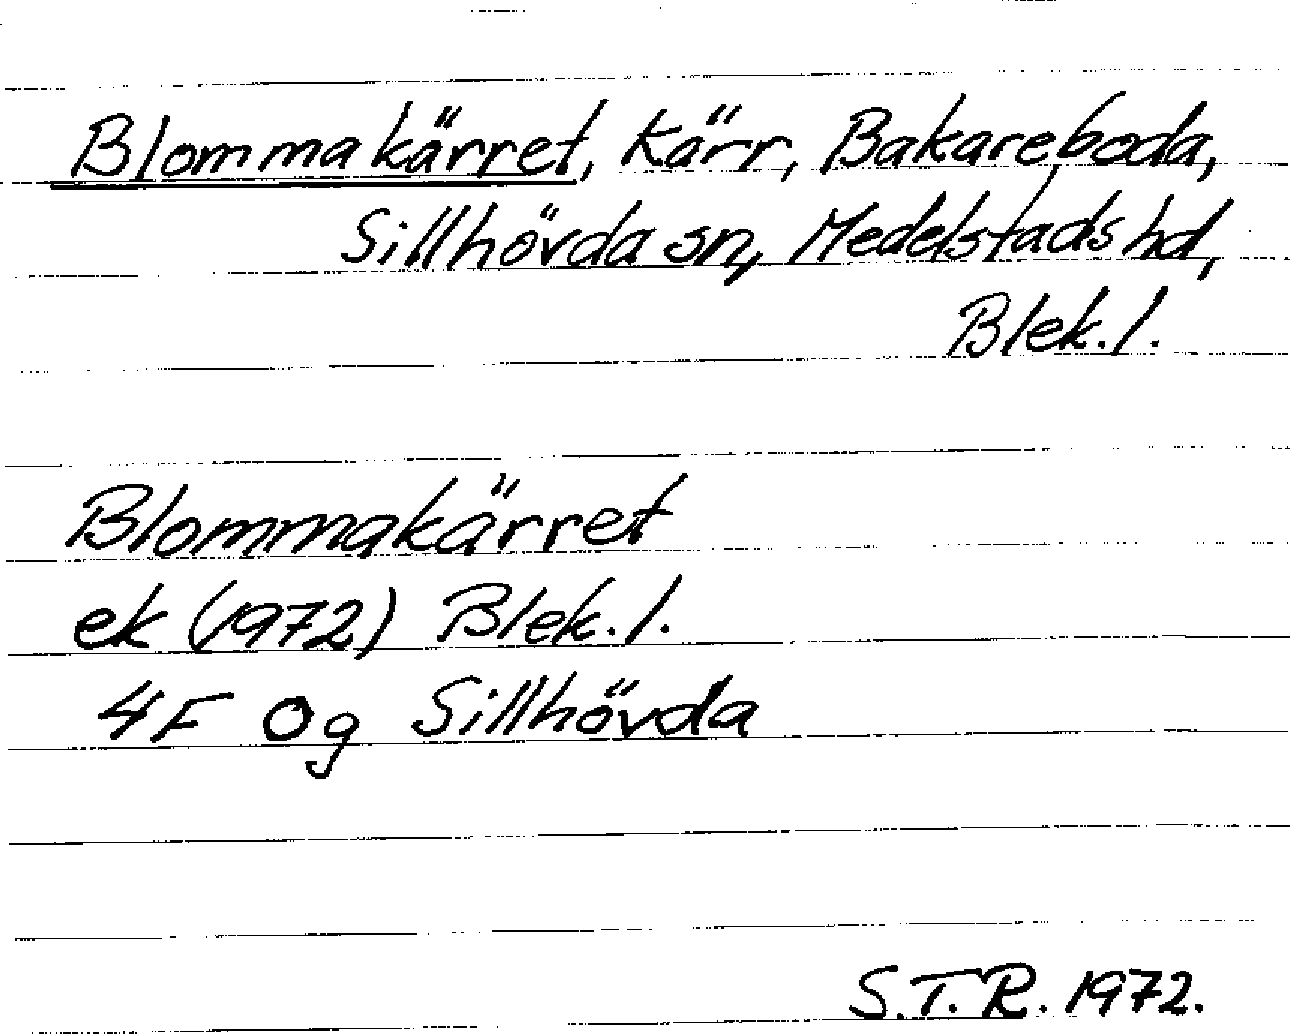 Blommakärret, Kärr, Bakareboda,
Sillhövda sn, Medelstads hd,
Blek. l.
Blommakärret
ek (1972) Blek. l.
4F 0g Sillhövda
S.T.R. 1972.